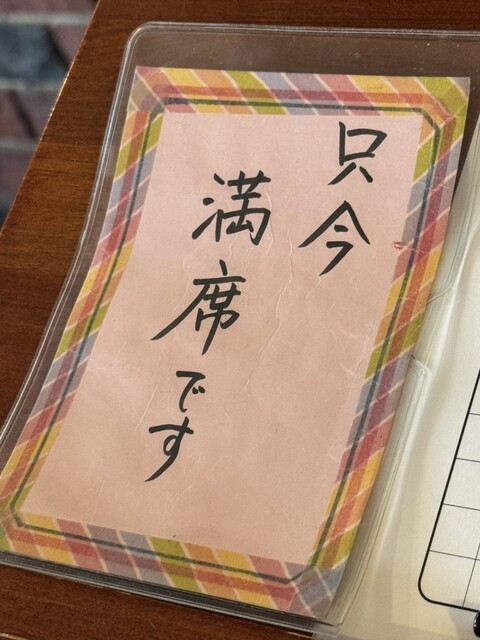 只今
満席です